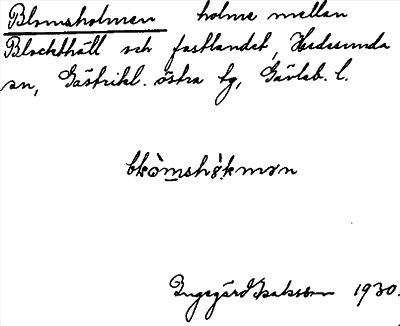 Blomsholmen holme mellan
Blockthäll och fastlandet, Hedesunda
sn, Gästrikl. östra tg, Gävleb. l.
Ingegärd Isaksson 1930.